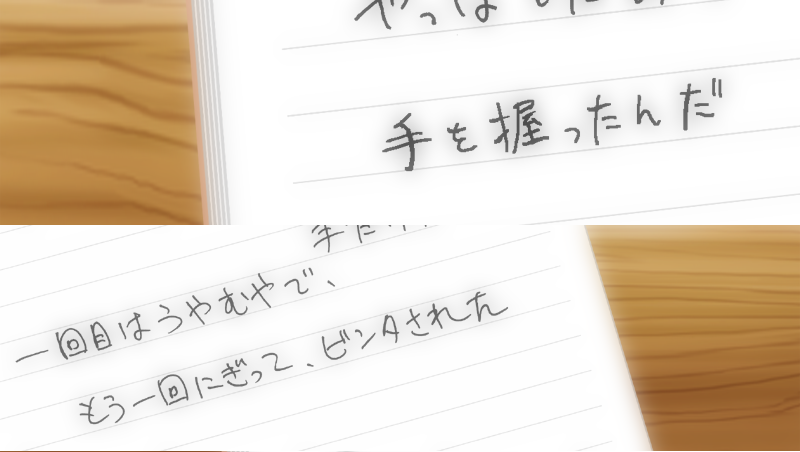 手を握ったんだ
一回目はうやむやで、
もう一回にぎって、ビンタされた